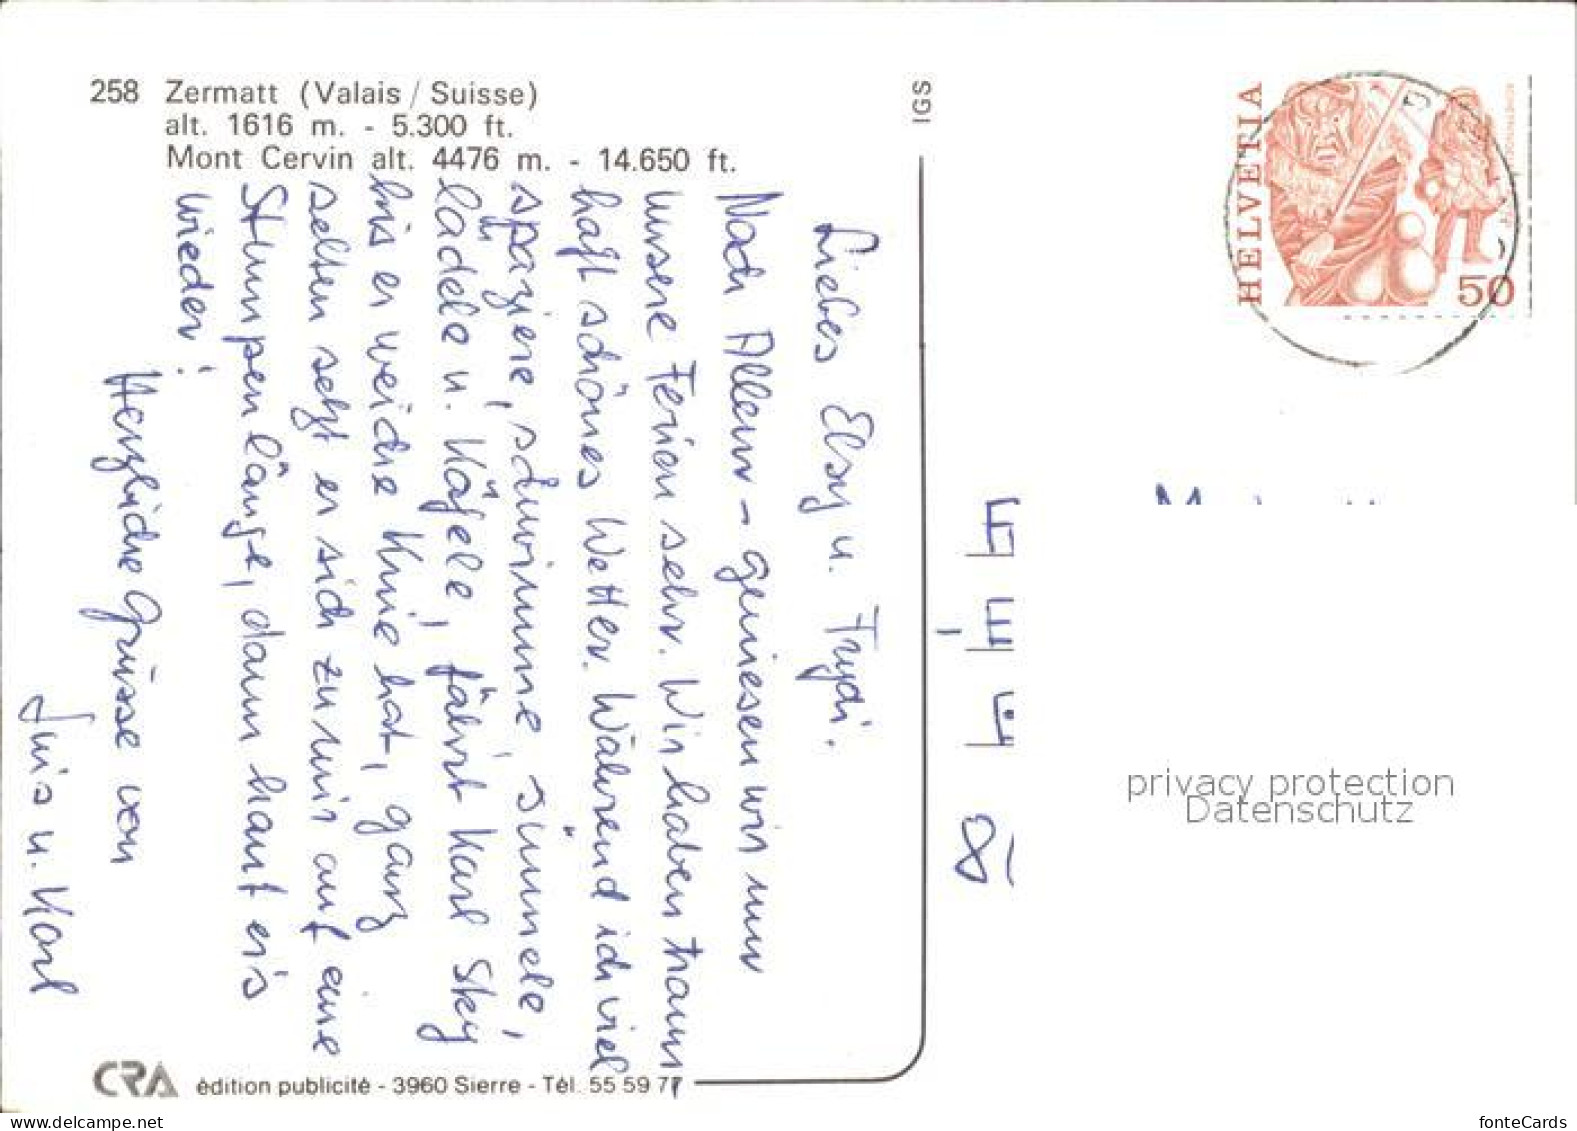 258 Zermatt (Valais / Suisse)
alt. 1616 m. - 5.300 ft.
Mont Cervin alt. 4476 m. - 14.650 ft.
IGS
HELVETIA
50
Liebes Elsy u. Frydi.
Nach Allem - geniesen wir nun
unsere Ferien sehr. Wir haben traum
haft schönes Wetter. Während ich viel
spaziere, schwimme, sünnele,
lädele u. käfele, fährt Karl Sky
bis er weiche Knie hat, ganz
selten setzt er sich zu mir auf eine
Stumpenlänge, dann haut er's
wieder!
Herzliche Grüsse von
u. Karl
privacy protection
Datenschutz
CRA édition publicité - 3960 Sierre - Tél. 55 59 77
www.delcampe.net
fonteCards